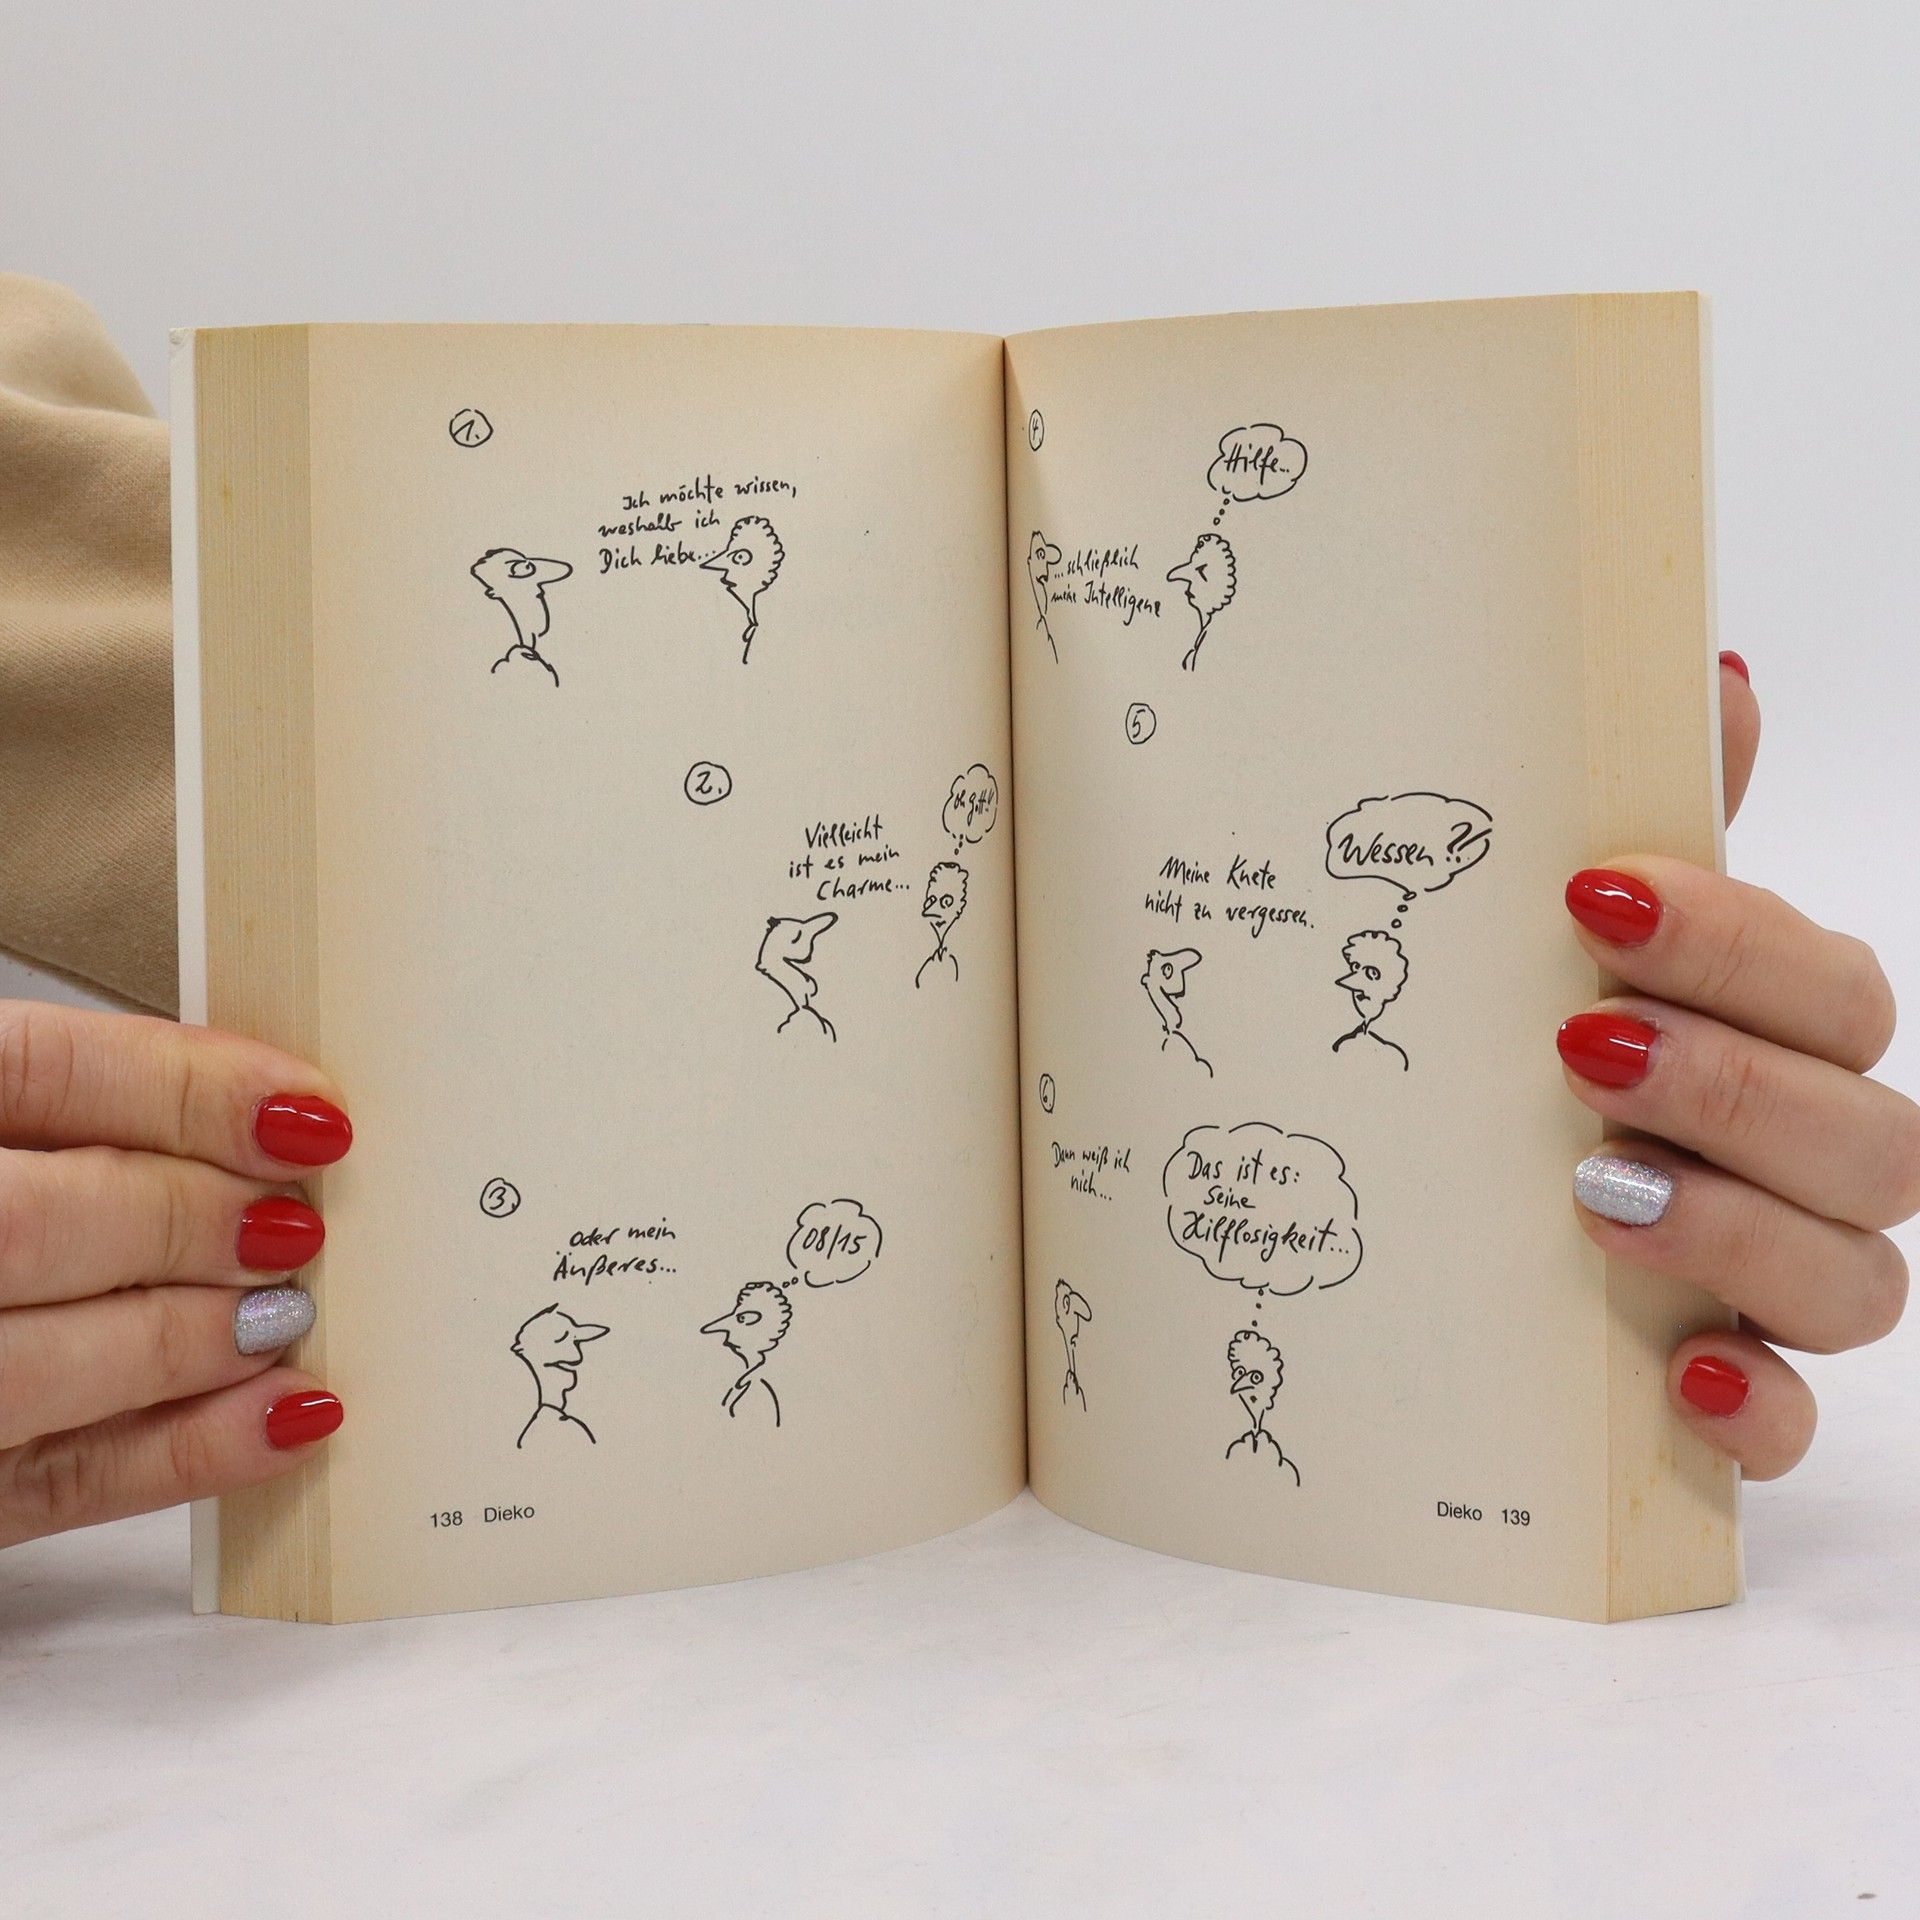 1.
Ich möchte wissen,
weshalb ich
Dich liebe...
2.
Oh Gott!!
Vielleicht
ist es mein
Charme...
3.
08/15
oder mein
Äußeres...
138 Dieko
4
Hilfe...
...schließlich
meine Intelligenz
5
Wessen?!!
Meine Knete
nicht zu vergessen.
6
Dann weiß ich
nich...
Das ist es:
Seine
Hilflosigkeit...
Dieko 139